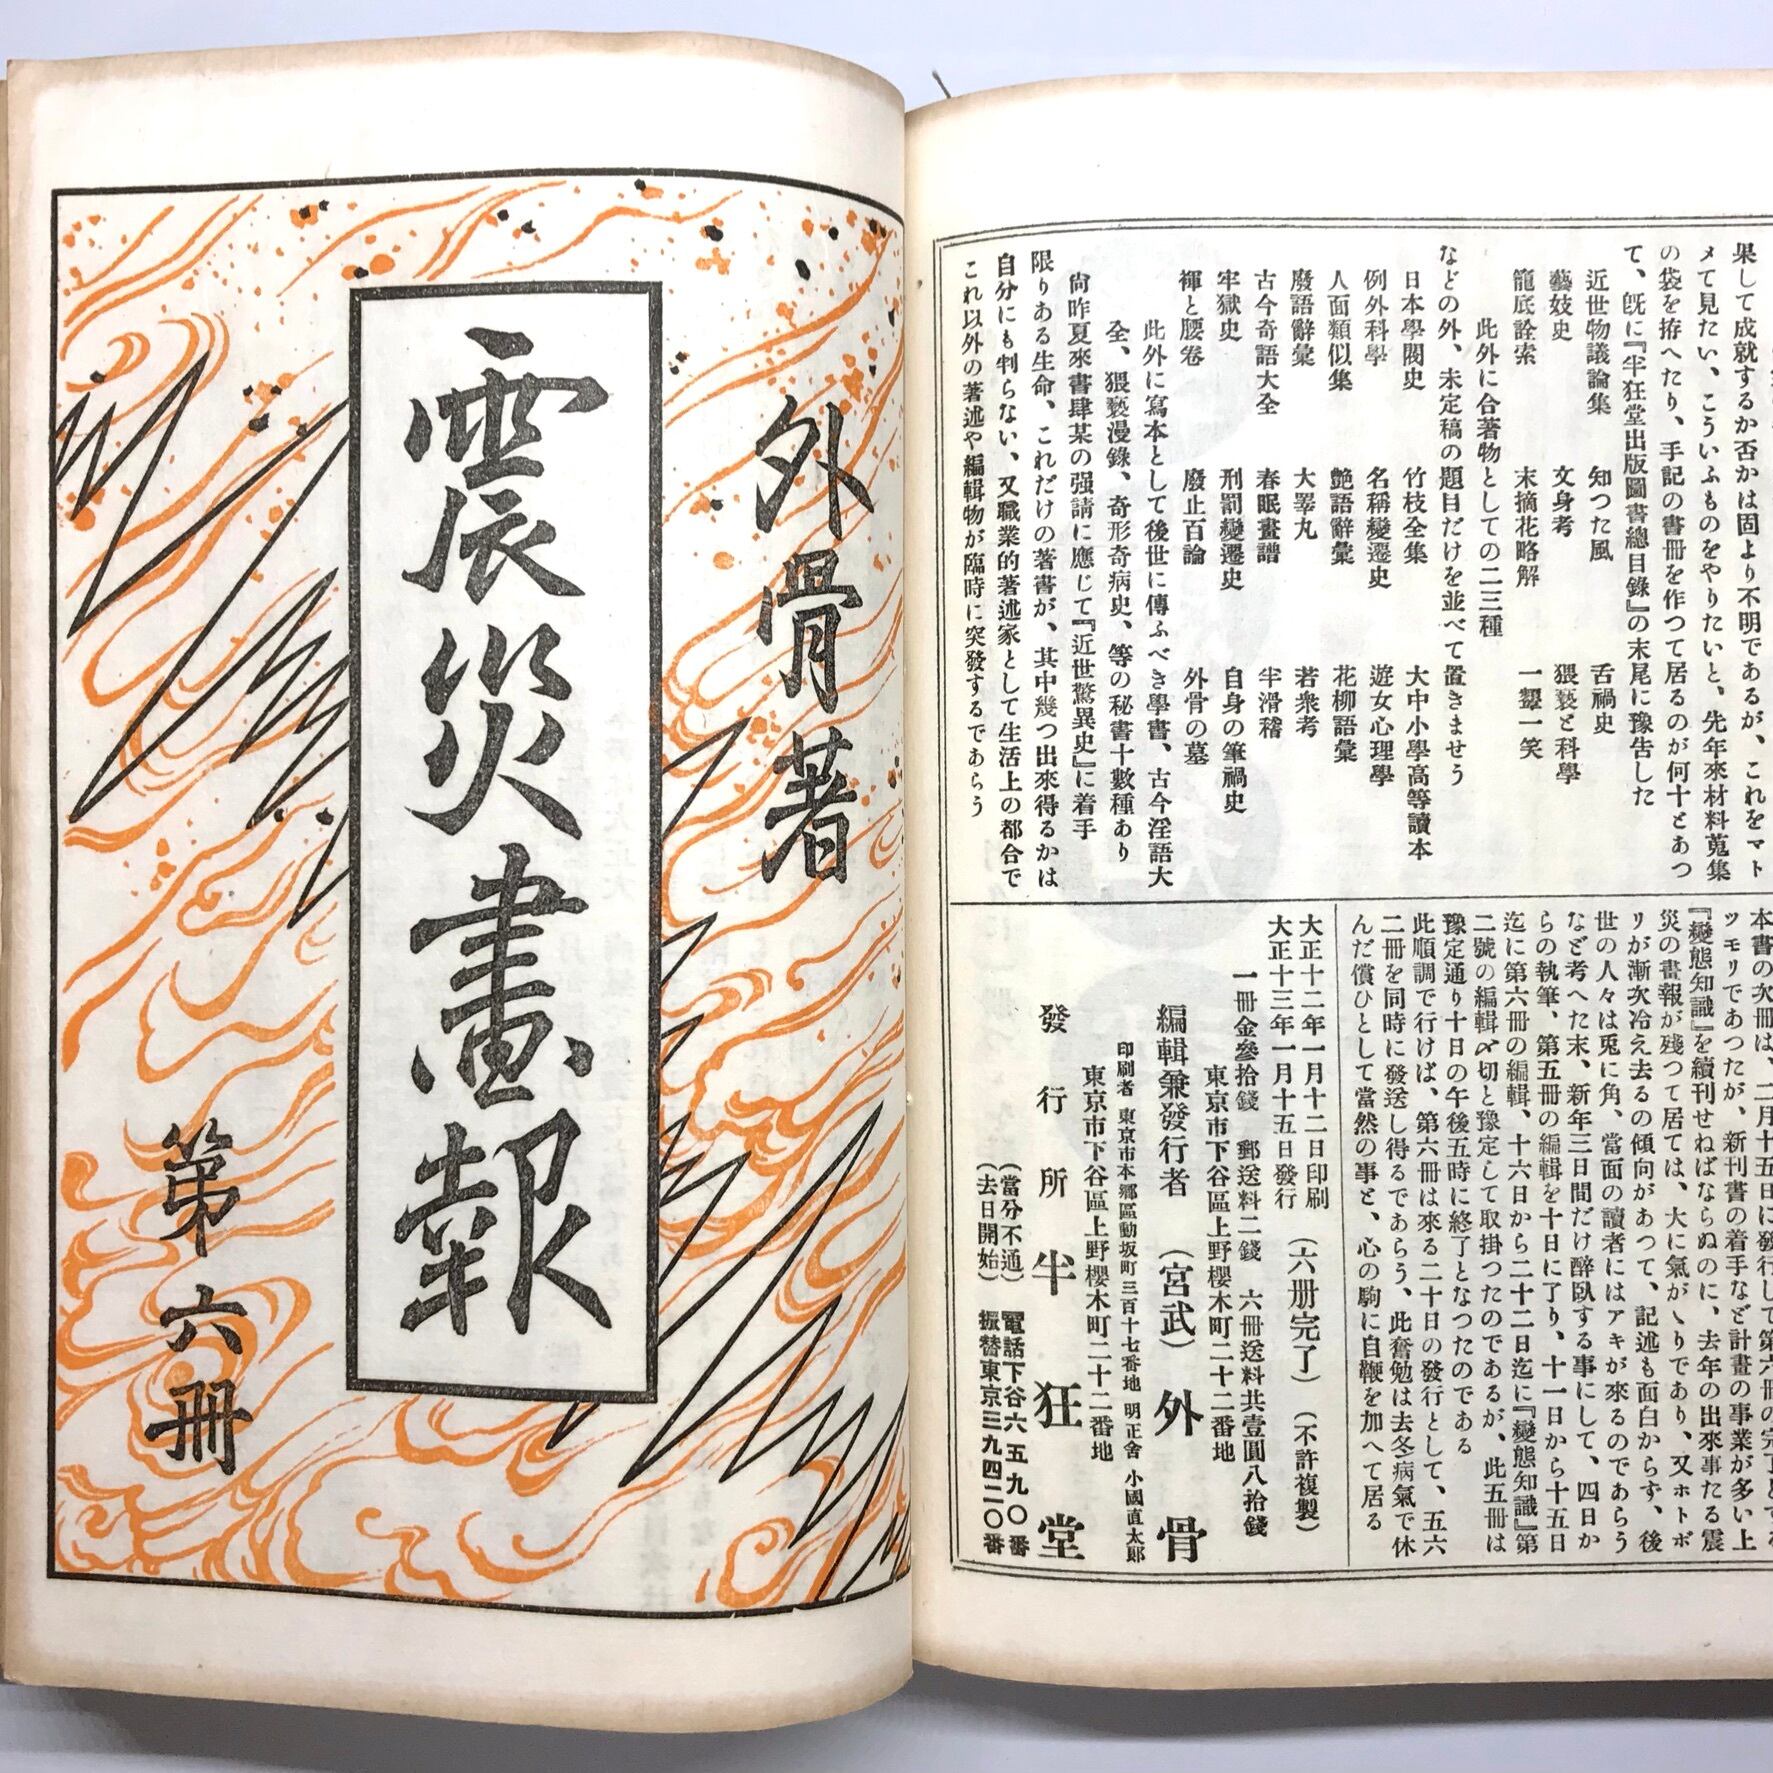 果して成就するか否かは固より不明であるが、これをマト
メて見たい、こういふものをやりたいと、先年來材料蒐集
の袋を拵へたり、手記の書冊を作つて居るのが何十とあつ
て、既に『半狂堂出版圖書總目錄』の末尾に豫告した
近世物議論集 知つた風 舌禍史
藝妓史 文身考 猥褻と科學
籠底詮索 末摘花略解 一顰一笑
此外に合著物としての二三種
などの外、未定稿の題目だけを並べて置きませう
日本學閥史 竹枝全集 大中小學高等讀本
例外科學 名稱變遷史 遊女心理學
人面類似集 艶語辭彙 花柳語彙
廢語辭彙 大睾丸 若衆考
古今奇語大全 春眠畫譜 半滑稽
牢獄史 刑罰變遷史 自身の筆禍史
褌と腰卷 廢止百論 外骨の墓
此外に寫本として後世に傳ふべき學書、古今淫語大
全、猥褻漫錄、奇形奇病史、等の秘書十數種あり
尙昨夏來書肆某の强請に應じて『近世驚異史』に着手
限りある生命、これだけの著書が、其中幾つ出來得るかは
自分にも判らない、又職業的著述家として生活上の都合で
これ以外の著述や編輯物が臨時に突發するであらう
本書の次冊は、二月十五日に發行して第六冊の完了とする
ツモリであつたが、新刊書の着手など計畫の事業が多い上
『變態知識』を續刊せねばならぬのに、去年の出來事たる震
災の畫報が殘つて居ては、大に氣がゝりであり、又ホトボ
リが漸次冷え去るの傾向があつて、記述も面白からず、後
世の人々は兎に角、當面の讀者にはアキが來るのであらう
など考へた末、新年三日間だけ醉臥する事にして、四日か
らの執筆、第五冊の編輯を十日に了り、十一日から十五日
迄に第六冊の編輯、十六日から二十二日迄に『變態知識』第
二號の編輯〆切と豫定して取掛つたのであるが、此五冊は
豫定通り十日の午後五時に終了となつたのである
此順調で行けば、第六冊は來る二十日の發行として、五六
二冊を同時に發送し得るであらう、此奮勉は去冬病氣で休
んだ償ひとして當然の事と、心の駒に自鞭を加へて居る
大正十二年一月十二日印刷 (六册完了)
大正十三年一月十五日發行 (不許複製)
一冊金參拾錢 郵送料二錢 六冊送料共壹圓八拾錢
東京市下谷區上野櫻木町二十二番地
編輯兼發行者 (宮武) 外骨
印刷者 東京市本鄕區動坂町三百十七番地 明正舍 小國直太郞
東京市下谷區上野櫻木町二十二番地
發行所 半狂堂
(當分不通) 電話下谷六五九〇番
(去日開始) 振替東京三九四二〇番
外骨著
震災畫報
第六冊